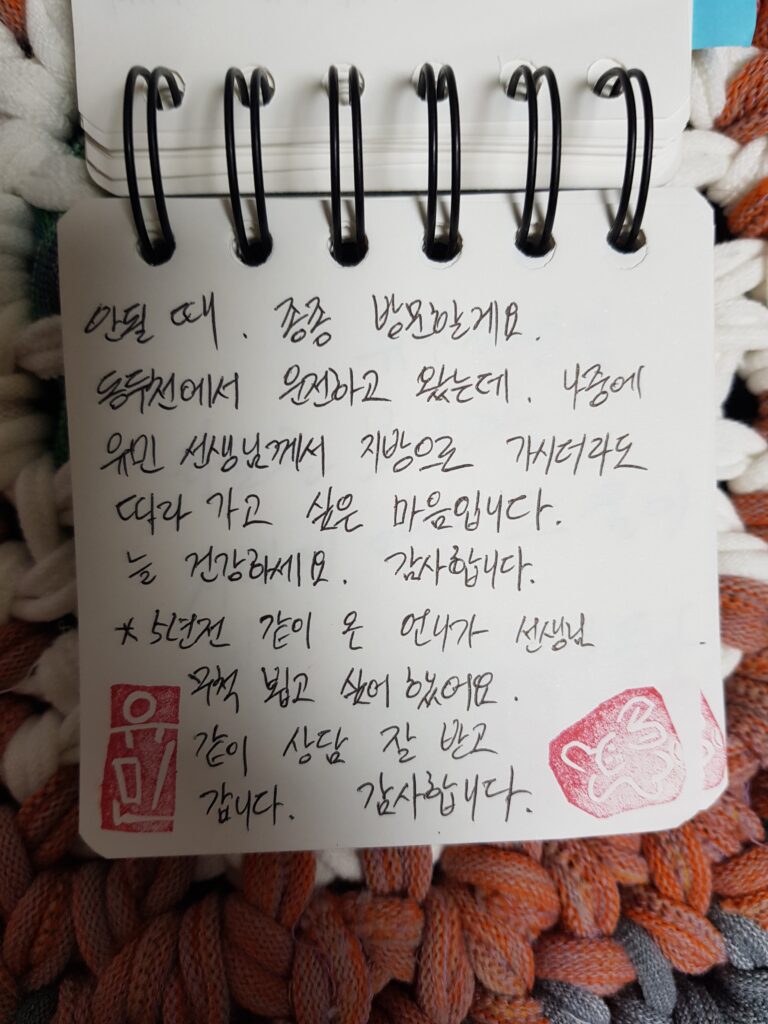 안될 때. 종종 방문할게요.
동두천에서 운전하고 왔는데. 나중에
유민 선생님께서 지방으로 가시더라도
따라 가고 싶은 마음입니다.
늘 건강하세요. 감사합니다.
* 5년전 같이 온 언니가 선생님
무척 뵙고 싶어 했어요.
같이 상담 잘 받고
갑니다. 감사합니다.
유민